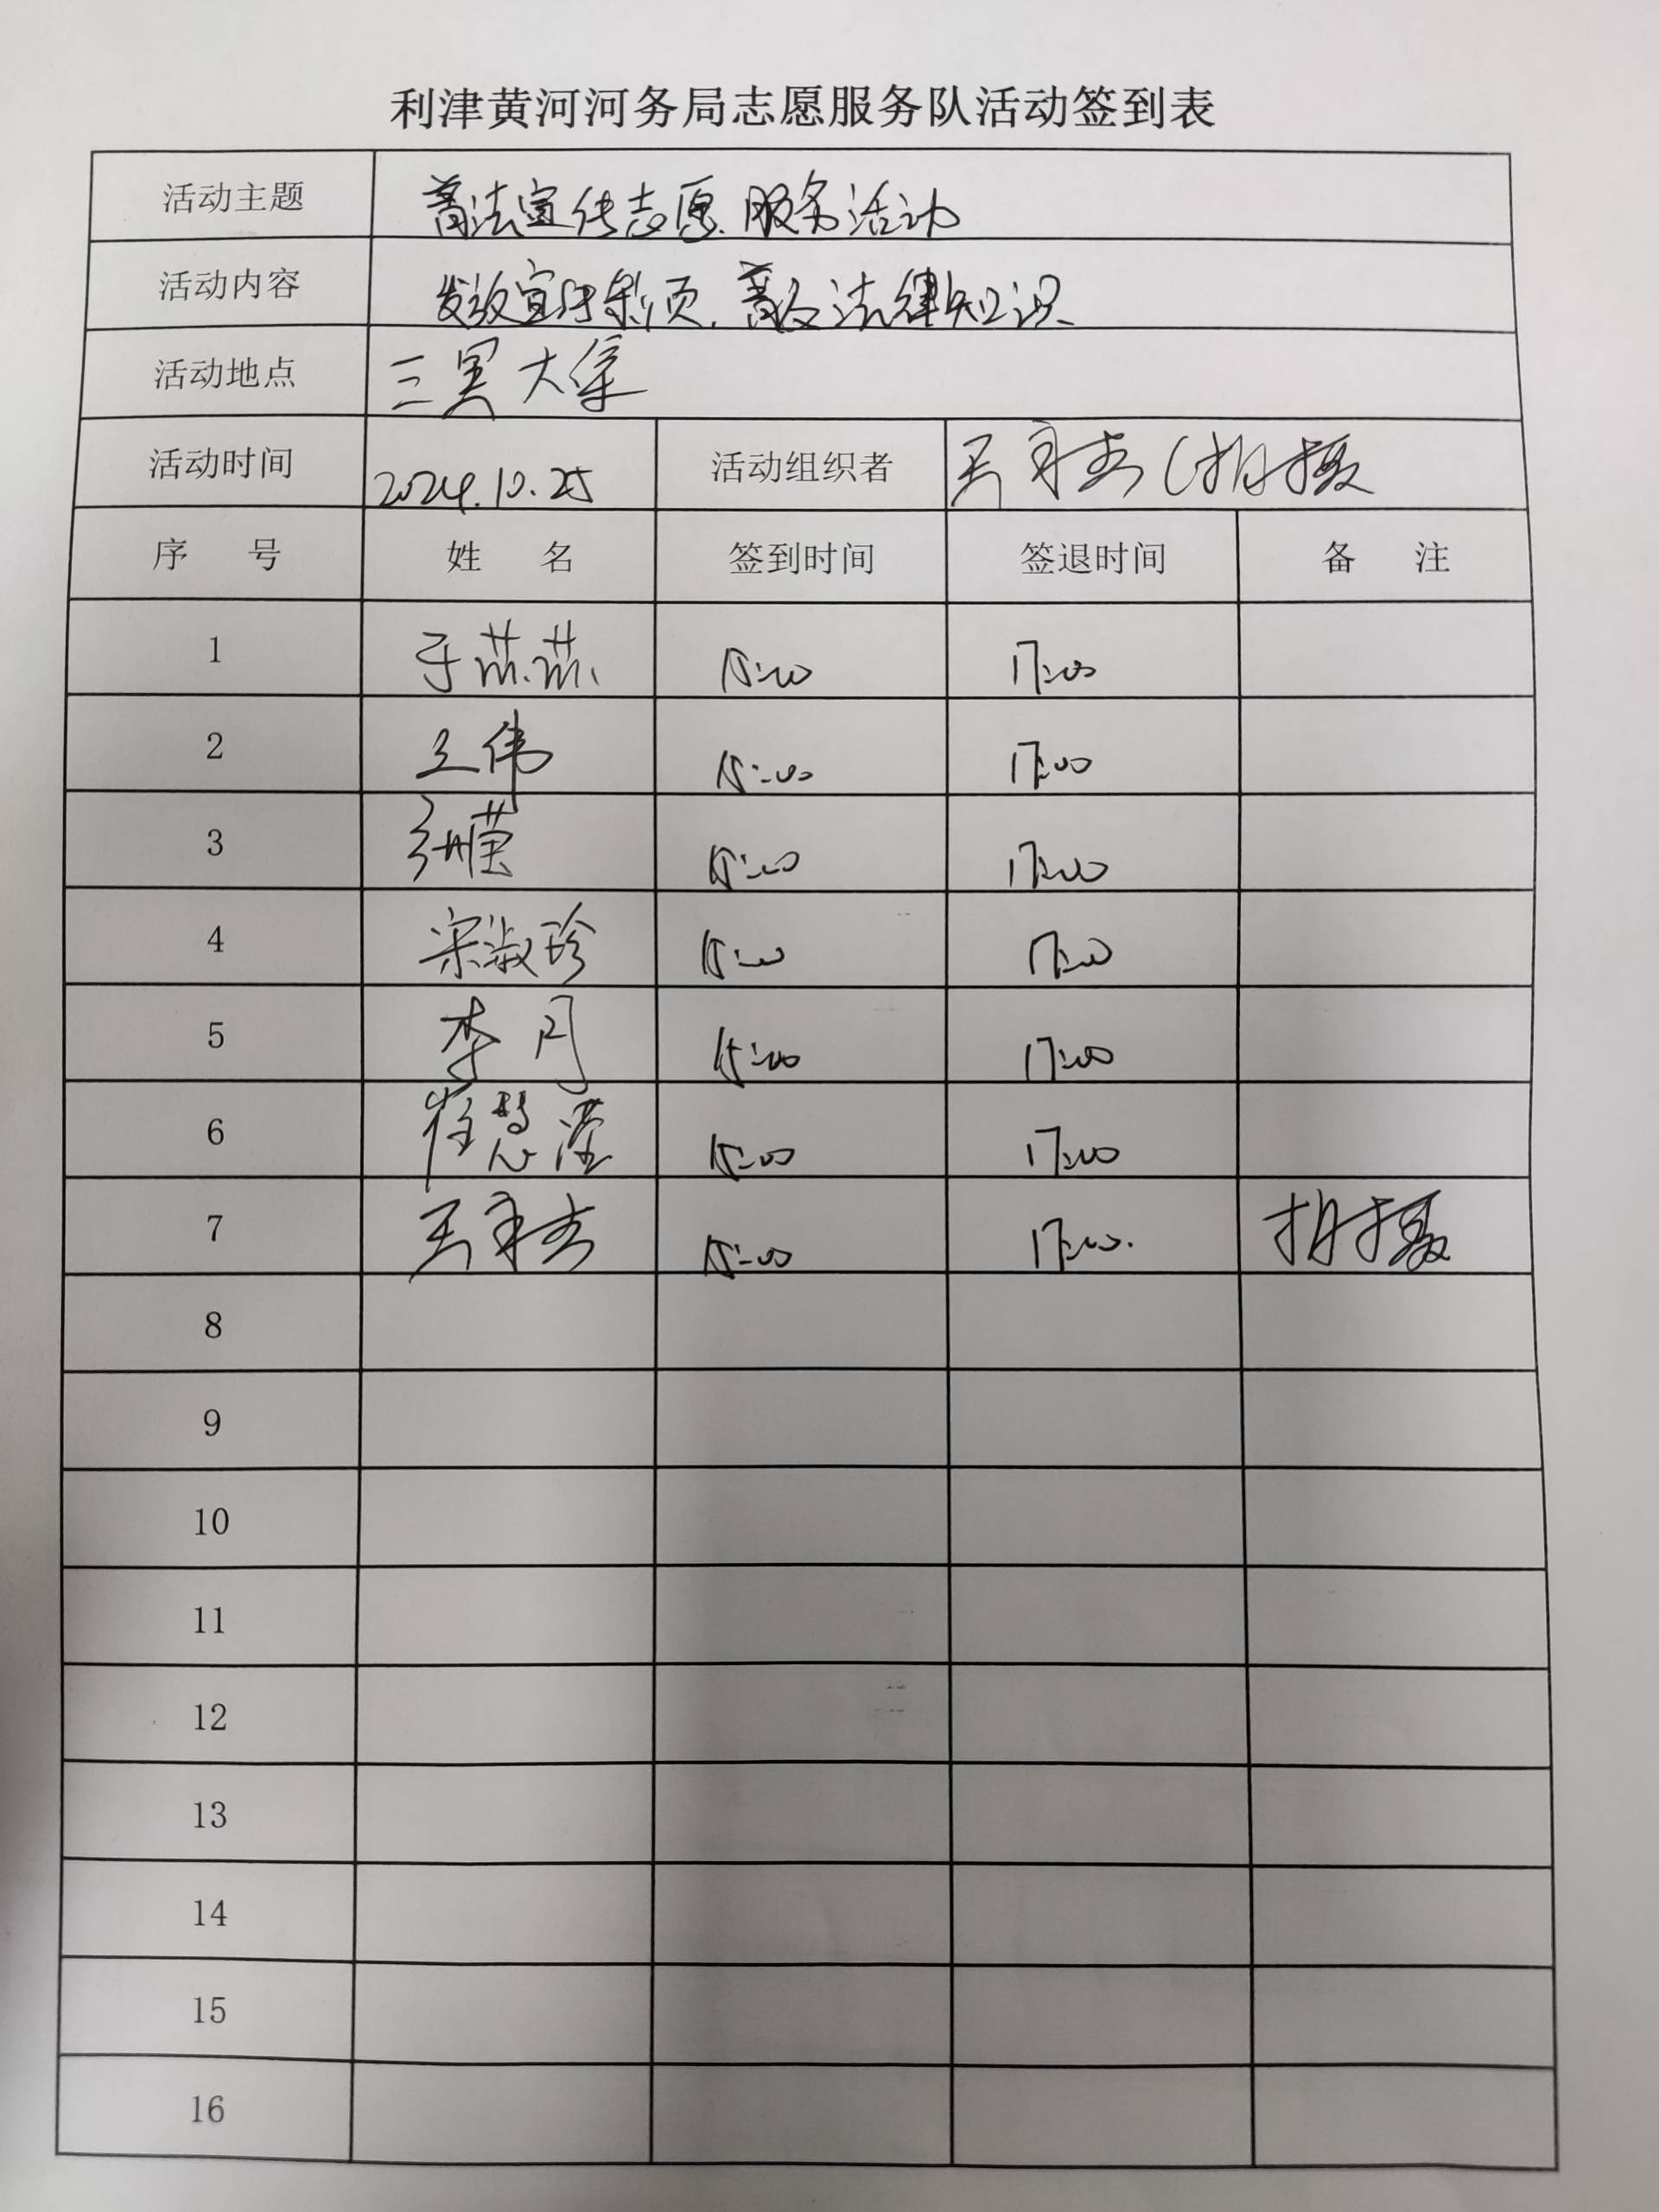 利津黄河河务局志愿服务队活动签到表
活动主题 普法宣传志愿服务活动
活动内容 发放宣传彩页、普及法律知识
活动地点 三里大集
活动时间 2024.10.25 活动组织者 王 (拍摄
序 号 姓 名 签到时间 签退时间 备 注
1 于燕燕 15:00 17:00
2 王伟 15:00 17:00
3 15:00 17:00
4 宋淑珍 15:00 17:00
5 李月 15:00 17:00
6 崔慧滢 15:00 17:00
7 王 15:00 17:00. 拍摄
8
9
10
11
12
13
14
15
16